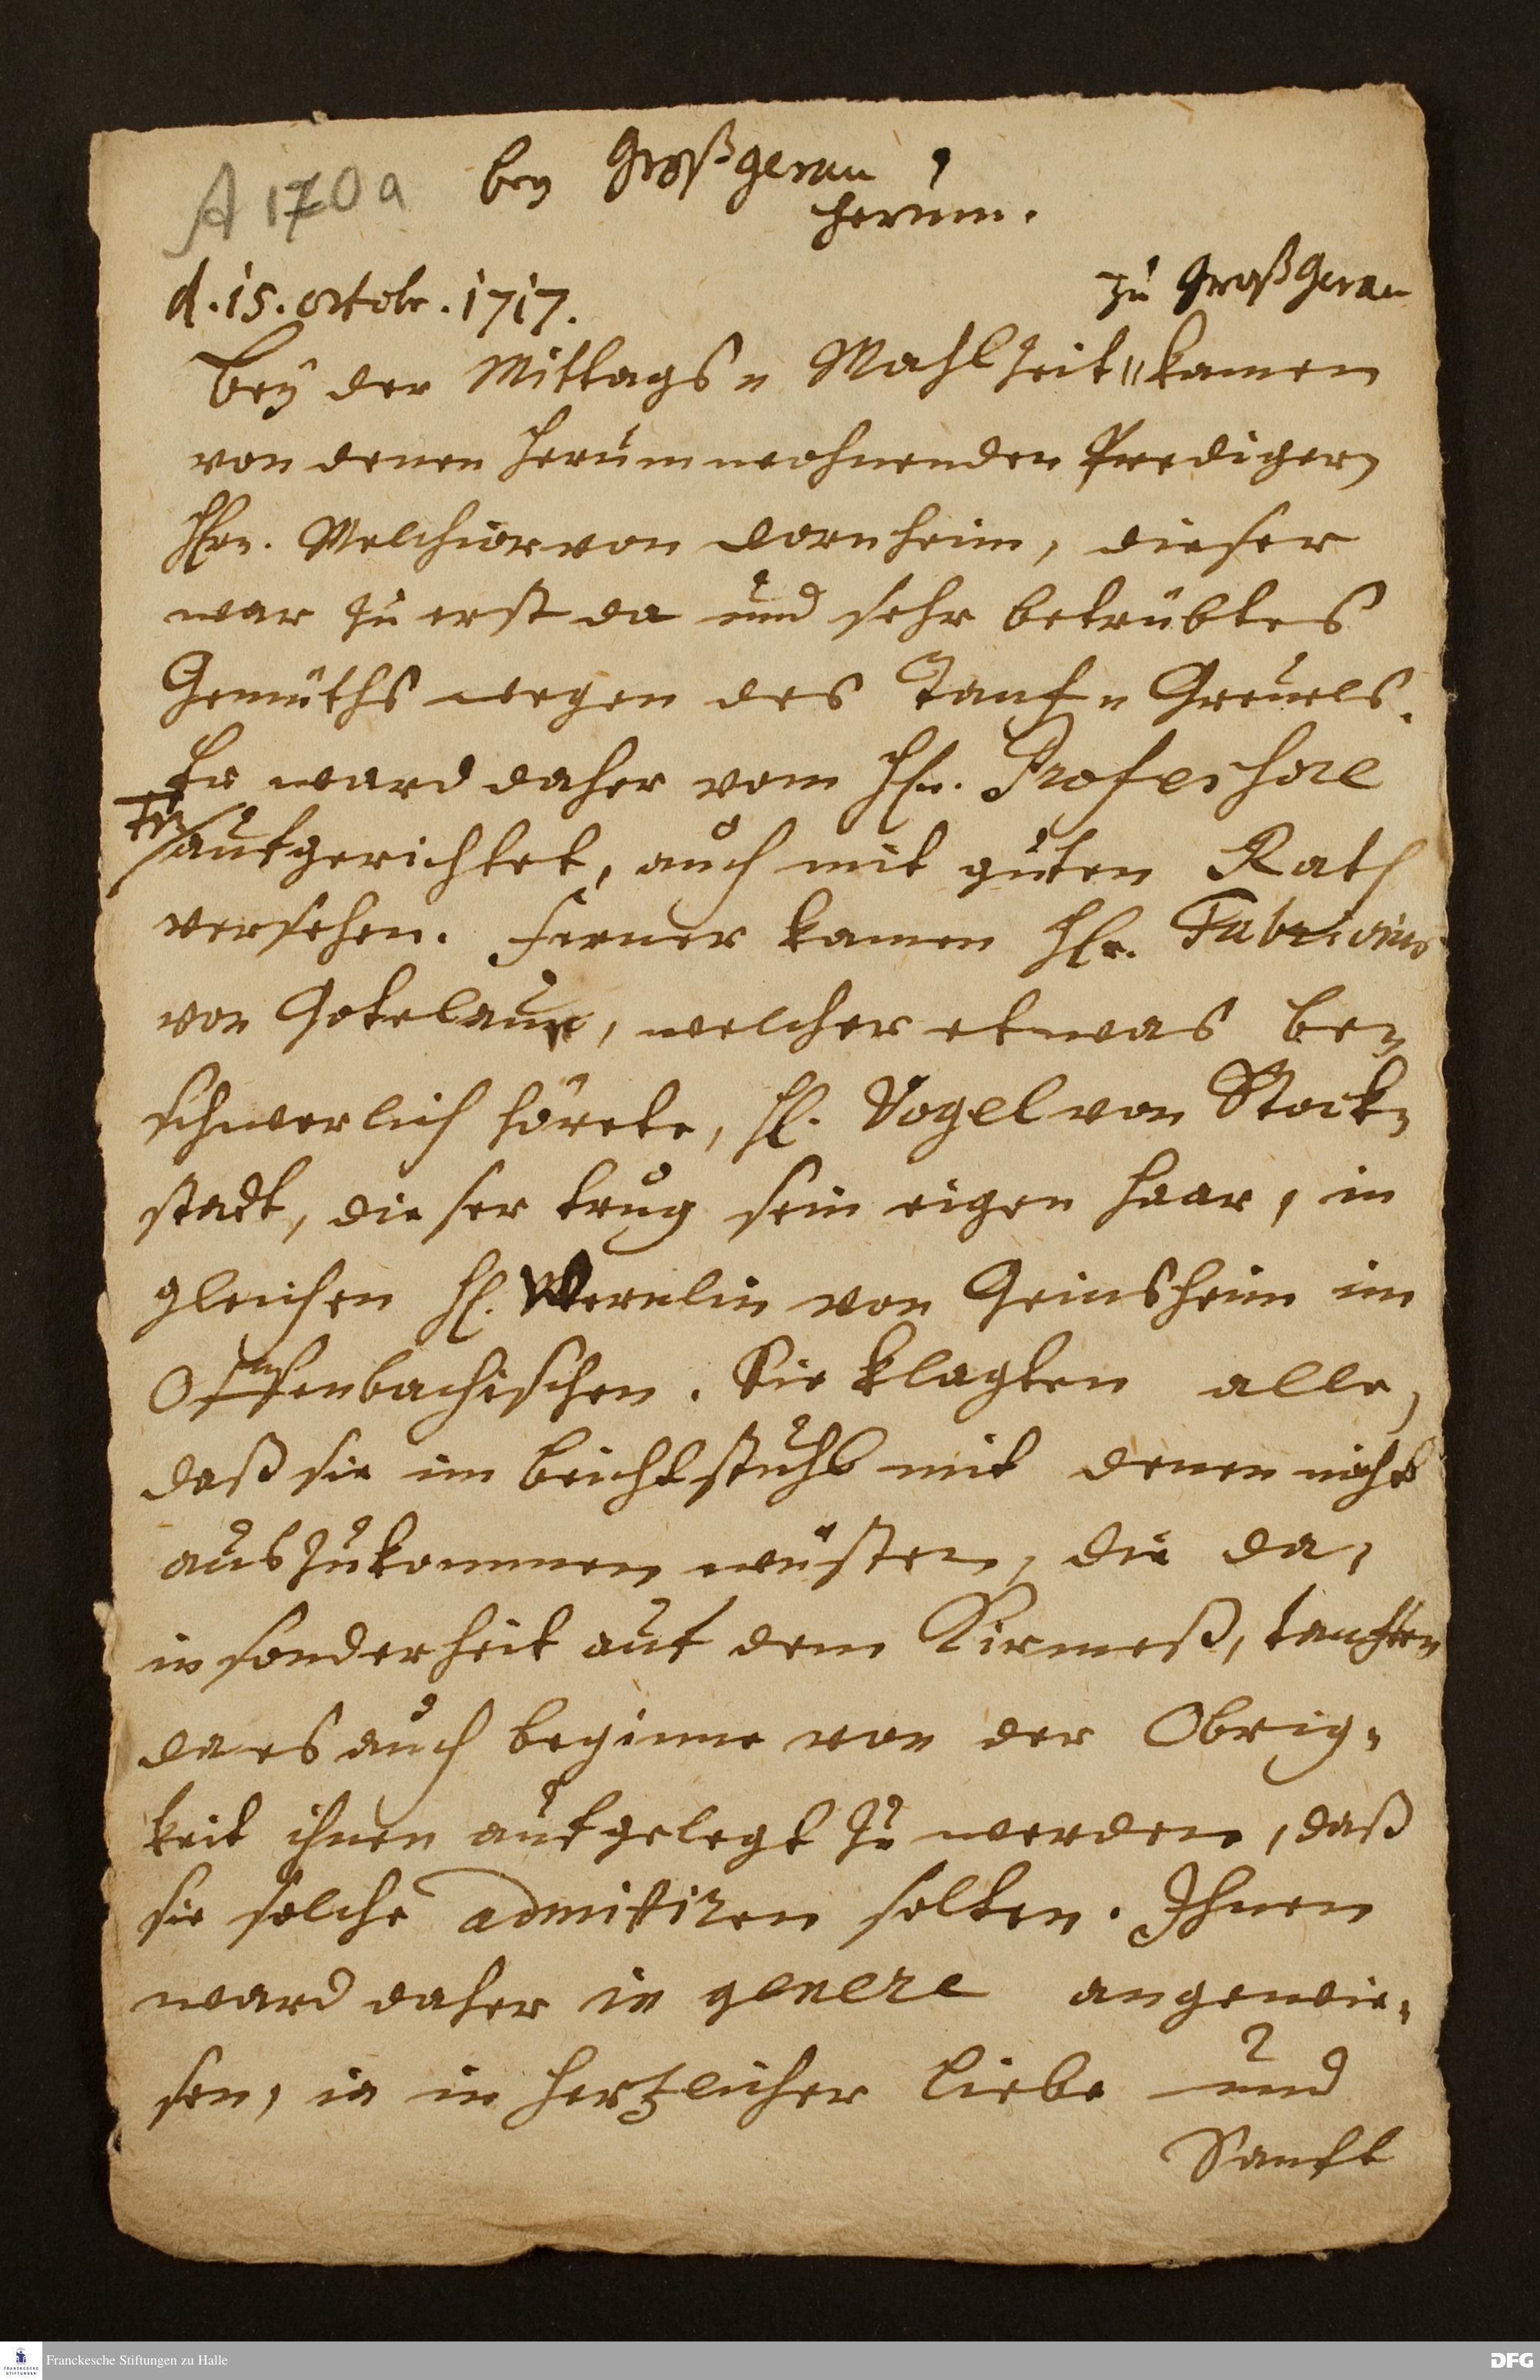 A 170a
bey Großgerau
herum.
d. 15. octobr. 1717.
zu Großgerau
Bey der Mittags- Mahlzeit kamen
von denen herum wohnenden Predigern
Hrn. Melchior von Dornheim, dieser
war zu erst da und sehr betrübtes
Gemüths wegen des Tantz- Greuels.
Er ward daher vom Hrn. Professore
aufgerichtet, auch mit guten Rath
versehen. Ferner kamen Hr. Fabricius
von Gotelau, welcher etwas be-
schwerlich hörete, H. Vogel von Stock-
stadt, dieser trug sein eigen Haar, in
gleichen H. Wernlin von Geinsheim im
Offenbachischen. Sie klagten alle,
daß sie im Beichtstuhl mit denen nicht
auszukommen wüsten, die da,
in sonderheit auf dem Kirmeß, tantzten
da es auch beginne von der Obrig-
keit ihnen aufgelegt zu werden, daß
sie solche admittiren solten. Ihnen
ward daher in genere angewie-
sen, in in hertzlicher Liebe und
Sanft
Franckesche Stiftungen zu Halle
DFG